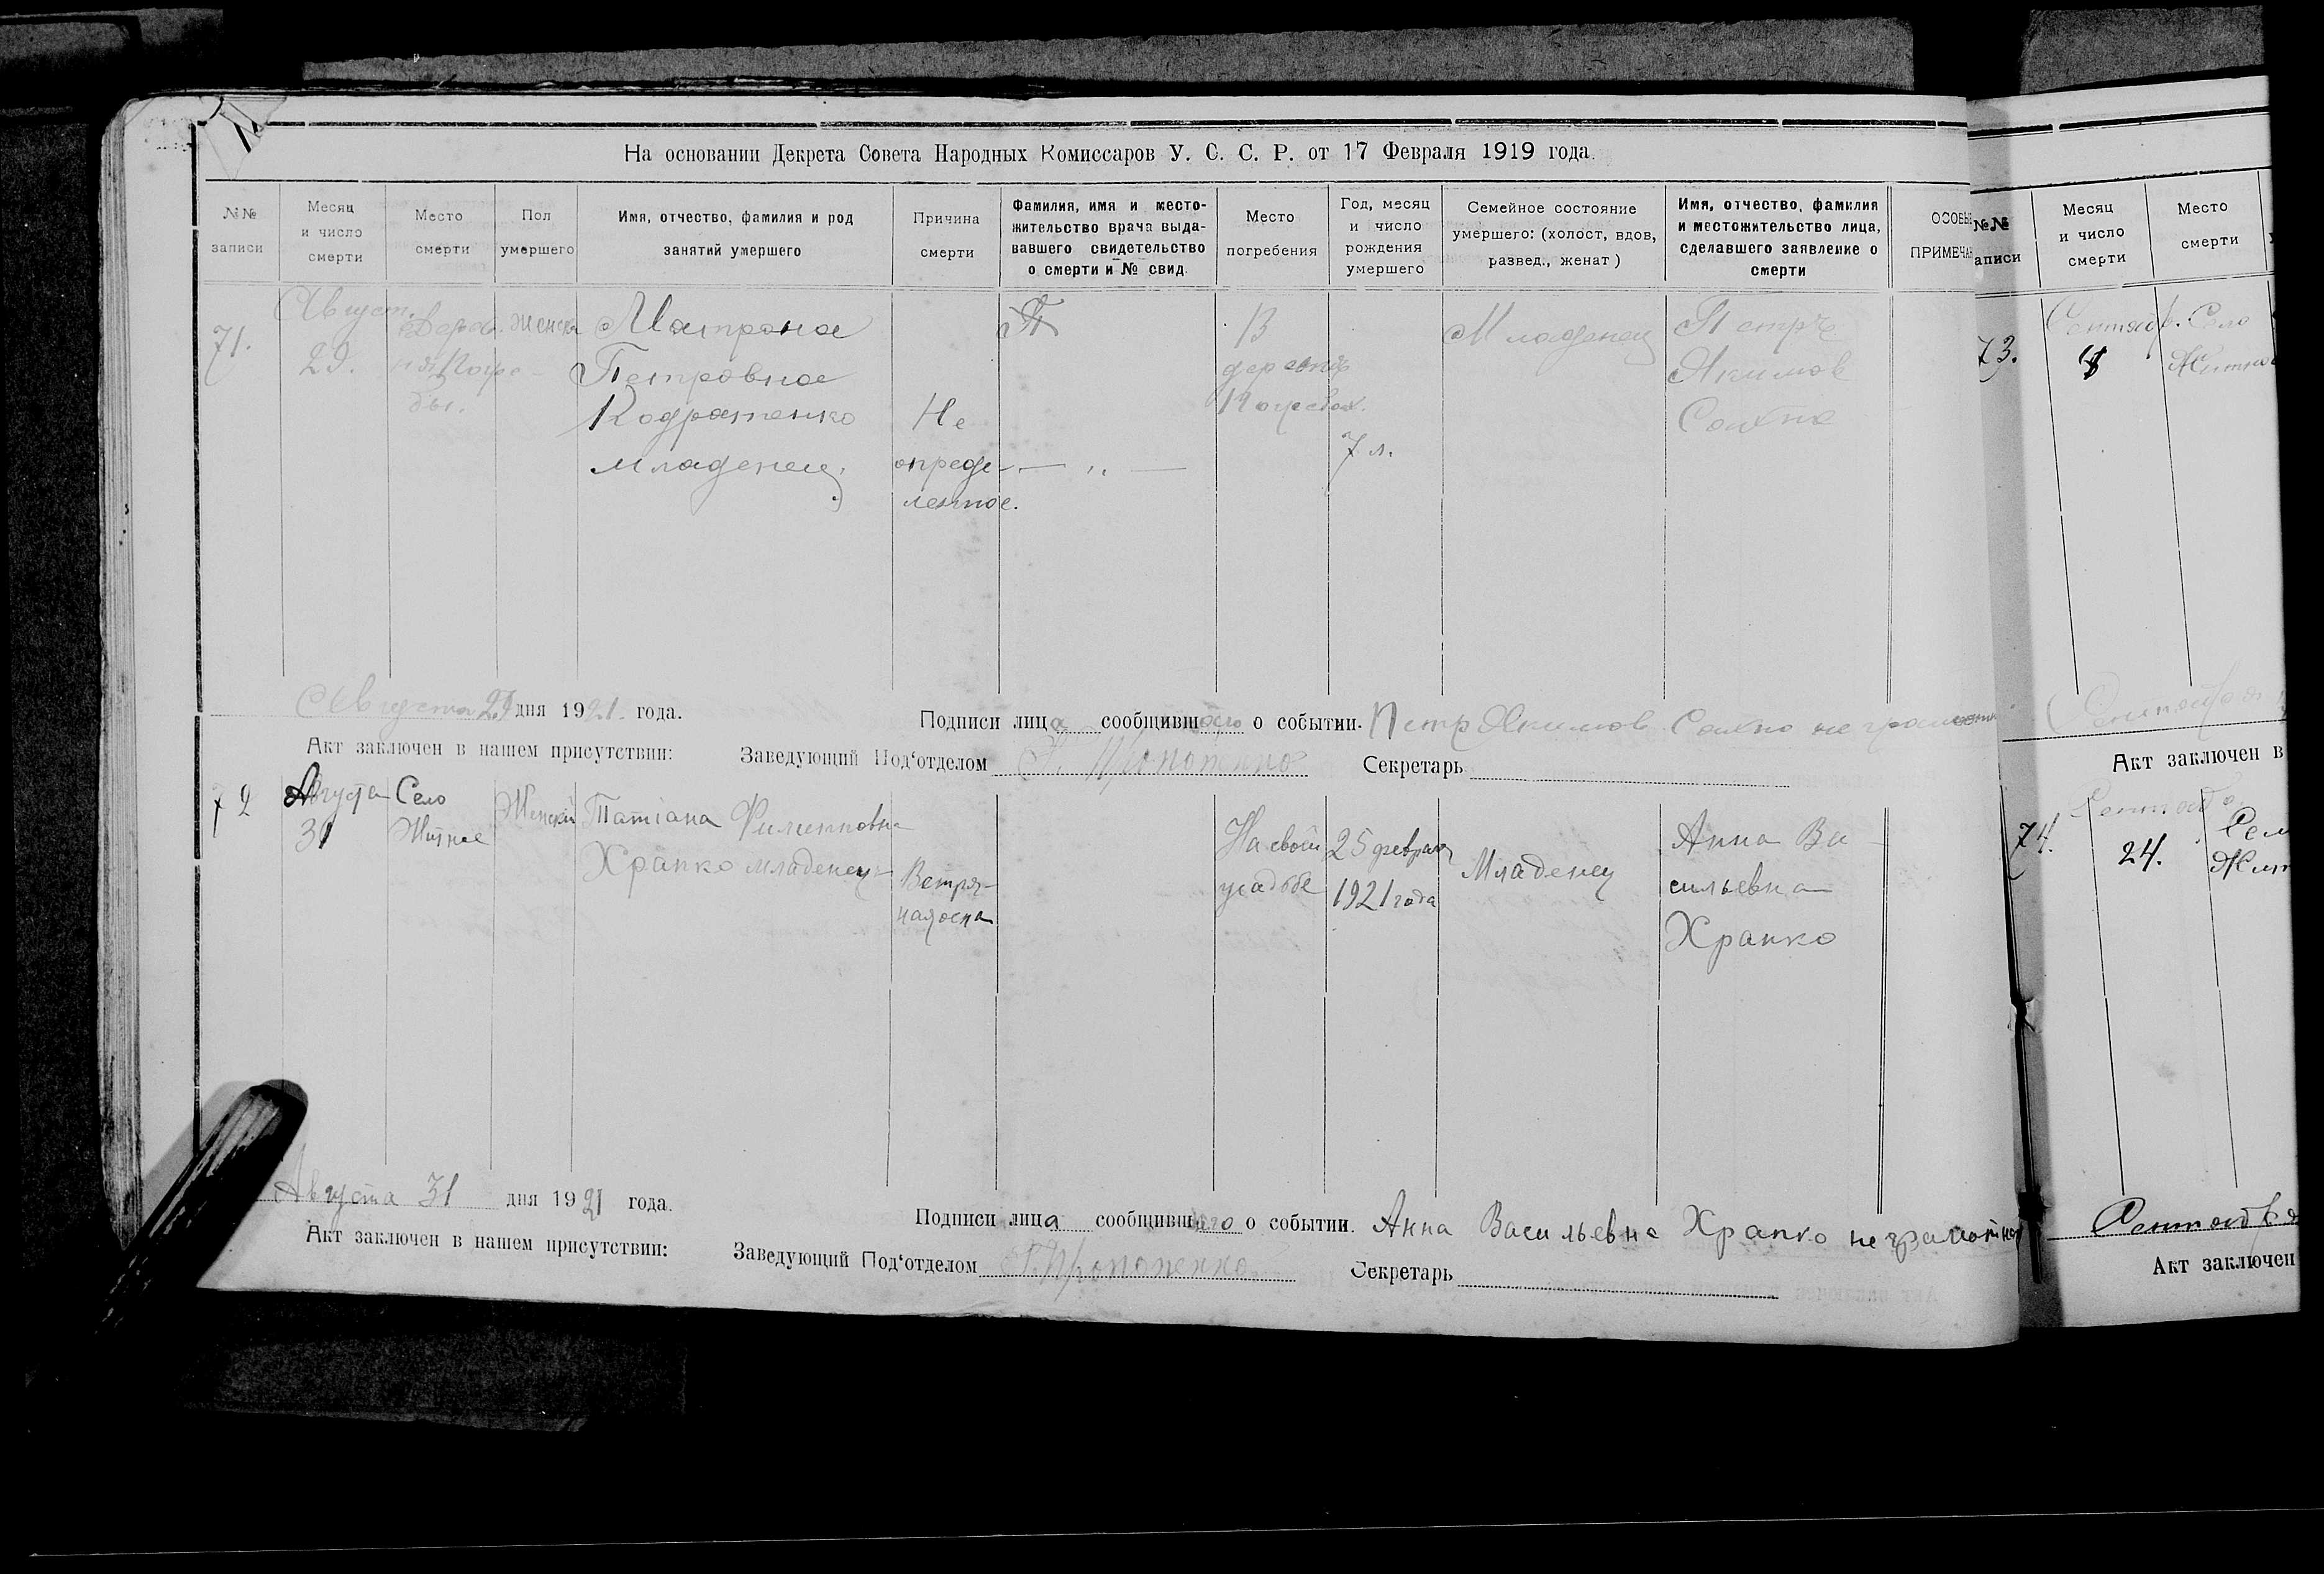 На основании Декрета Совета Народных Комиссаров У. С. С. Р. от 17 Февраля 1919 года.
№№ записи
Месяц и число смерти
Место смерти
Пол умершего
Имя, отчество, фамилия и род занятий умершего
Причина смерти
Фамилия, имя и место-
жительство врача выда-
вавшего свидетельство
о смерти и № свид.
Место погребения
Год, месяц и число рождения умершего
Семейное состояние
умершего: (холост, вдов,
развед., женат)
Имя, отчество, фамилия
и местожительство лица,
сделавшего заявление о
смерти
ОСОБЫ
ПРИМЕЧА
71.
Август.
29.
Дерев-
ня Погре-
бы.
Женск
Матрона
Петровна
Кодратенко
младенец
Не
опреде-
ленное.
— „ —
В
деревне
Погребах.
7 л.
Младенец
Петръ
Якимов
Сахно
Августа 29 дня 1921. года.
Подписи лица сообщившего о событии. Петр Якимов Сахно не грамотн
Акт заключен в нашем присутствии:
Заведующий Под‘отделом Прокопенко
Секретарь
72
Августа
31
Село
Житное
Женский
Татіана Филипповна
Храпко младенец
Ветря-
ная оспа
На своей
усадьбе
25 февраля
1921 года
Младенец
Анна Ва-
сильевна
Храпко
Августа 31 дня 1921 года.
Подписи лица сообщившего о событии. Анна Васильевна Храпко неграмотная
Акт заключен в нашем присутствии:
Заведующий Под‘отделом Прокопенко
Секретарь
№№
аписи
Месяц
и число
смерти
Место
смерти
73.
Сентябр.
Село
Житно
Сентября
Акт заключен в
74.
Сентяб
24.
Сел
Жит
Сентября
Акт заключен